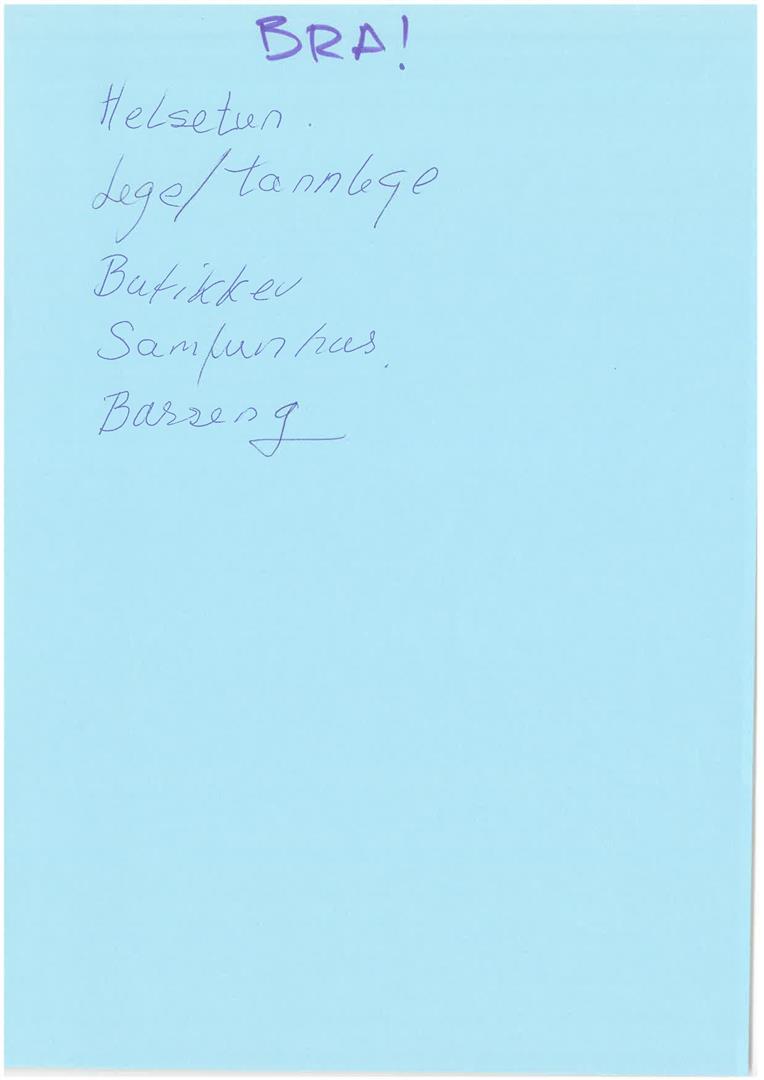 BRA!
Helsetun.
Lege/tannlege
Butikker
Samfunhus.
Basseng